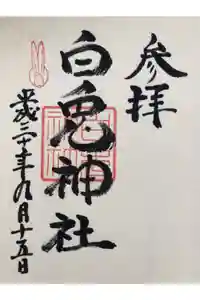 参拝
白兎神社
平成三十年九月十五日